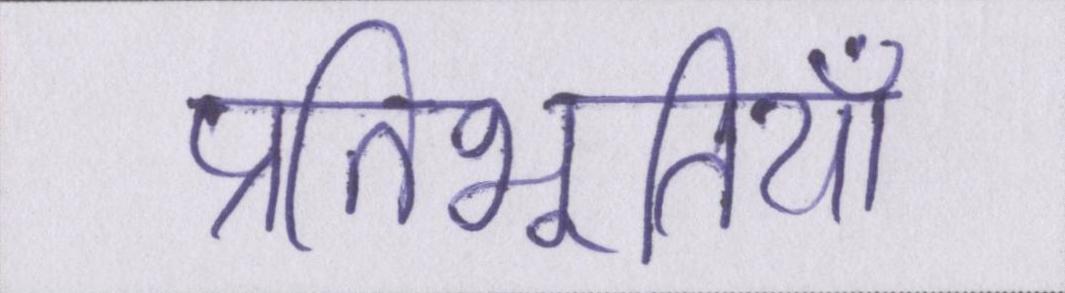 प्रतिभूतियाँ